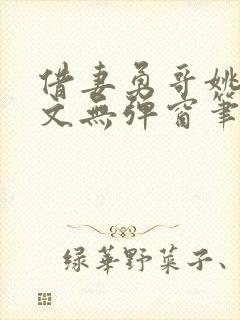 借妻勇哥姚
文無彈窗筆
绿华野菜子、